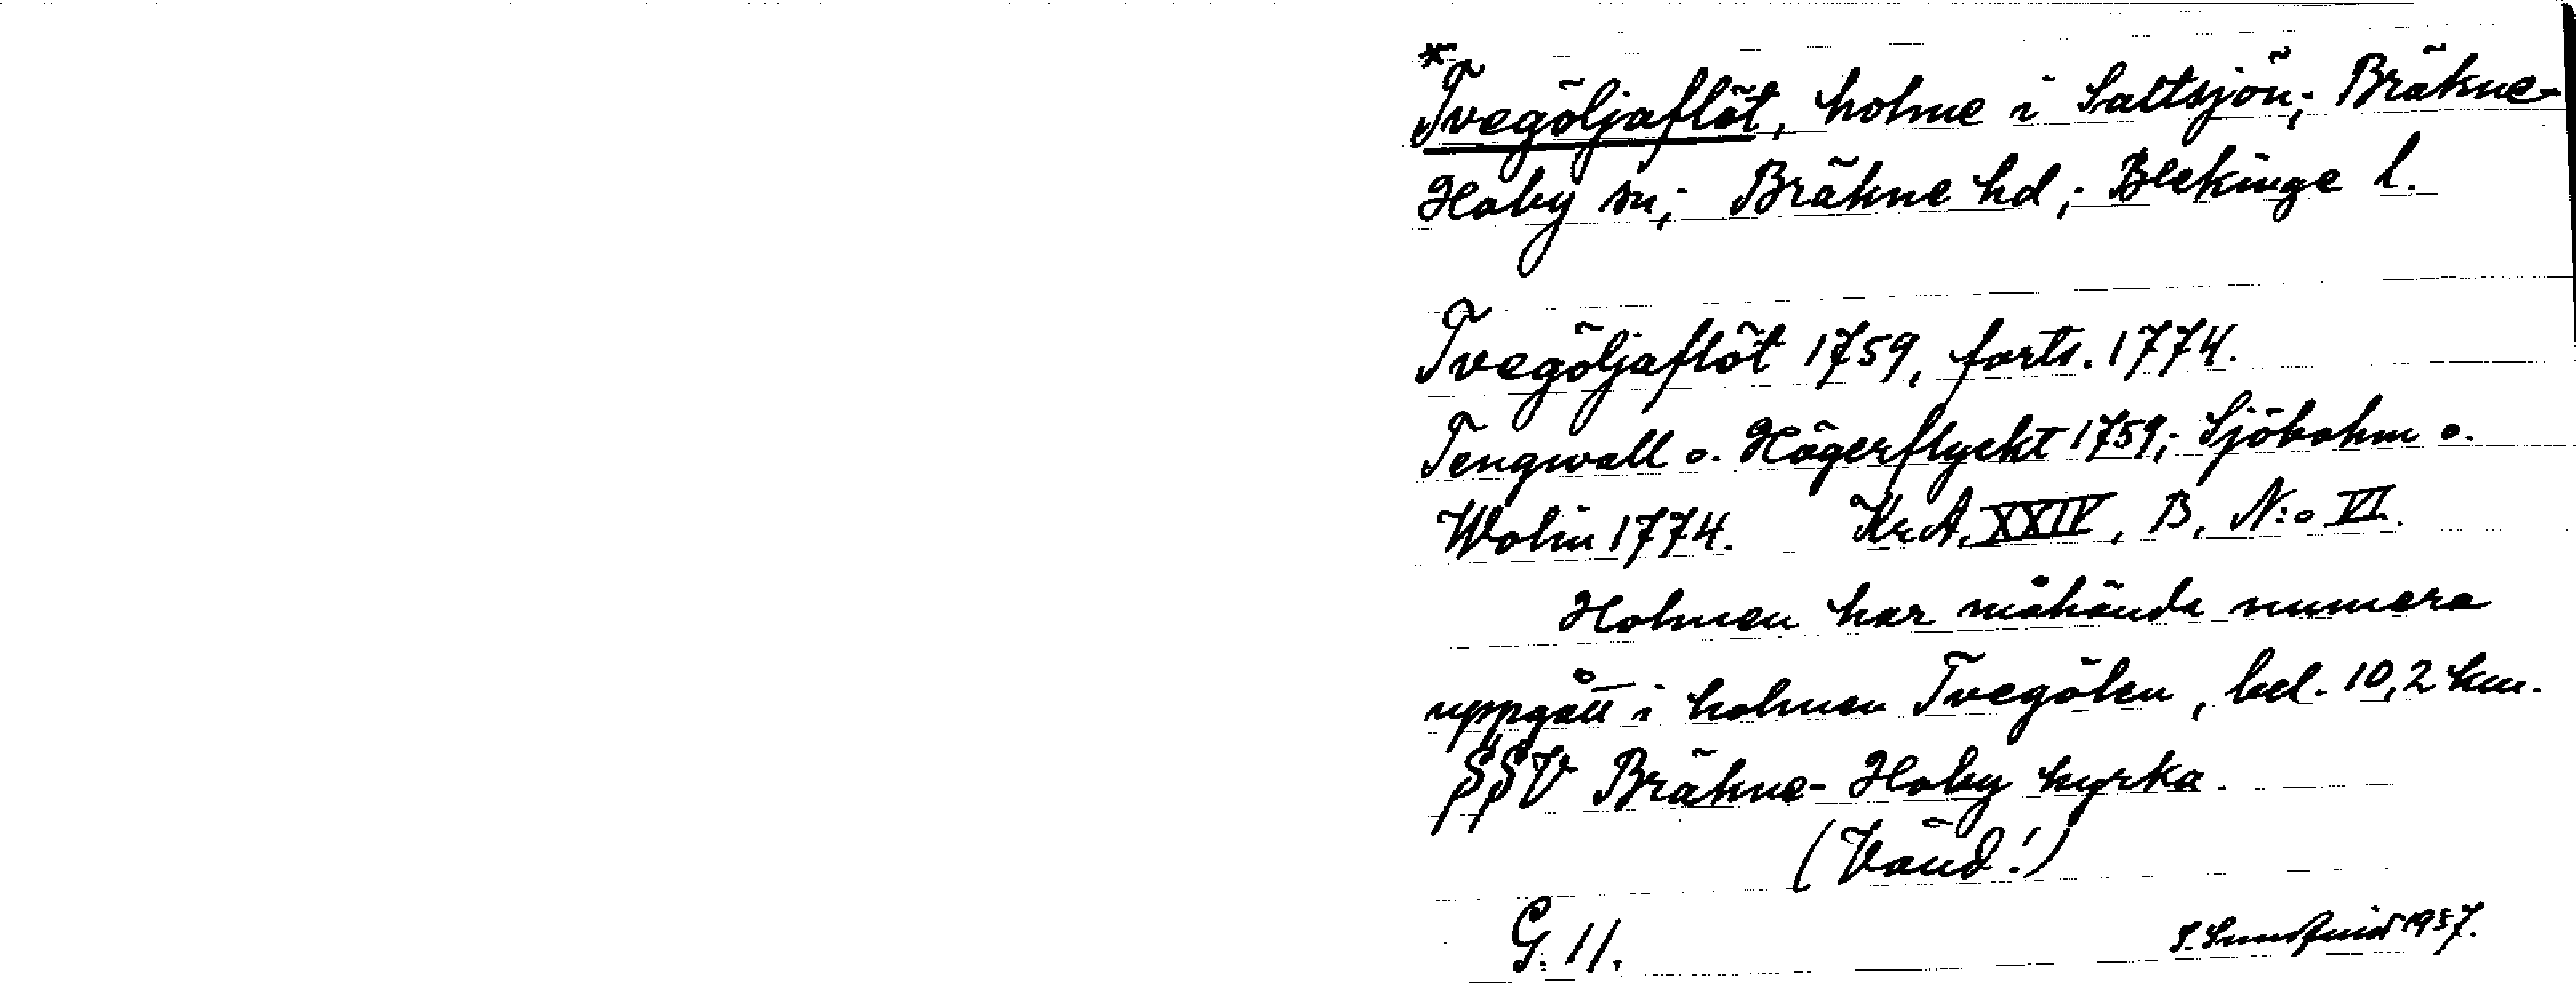 *Tvegöljaflöt, holme i Saltsjön; Bräkne-
Hoby sn; Bräkne hd; Blekinge l.
Tvegöljaflöt 1759, forts. 1774.
Tengwall o. Högerflyckt 1759; Sjöbohm o.
Wolin 1774. Kr.A. XXIV, B, N:o VI.
Holmen har måhända numera
uppgått i holmen Tvegölen, bel. 10,2 km.
SSV Bräkne-Hoby kyrka.
(Vänd!)
G. 11.
1957.